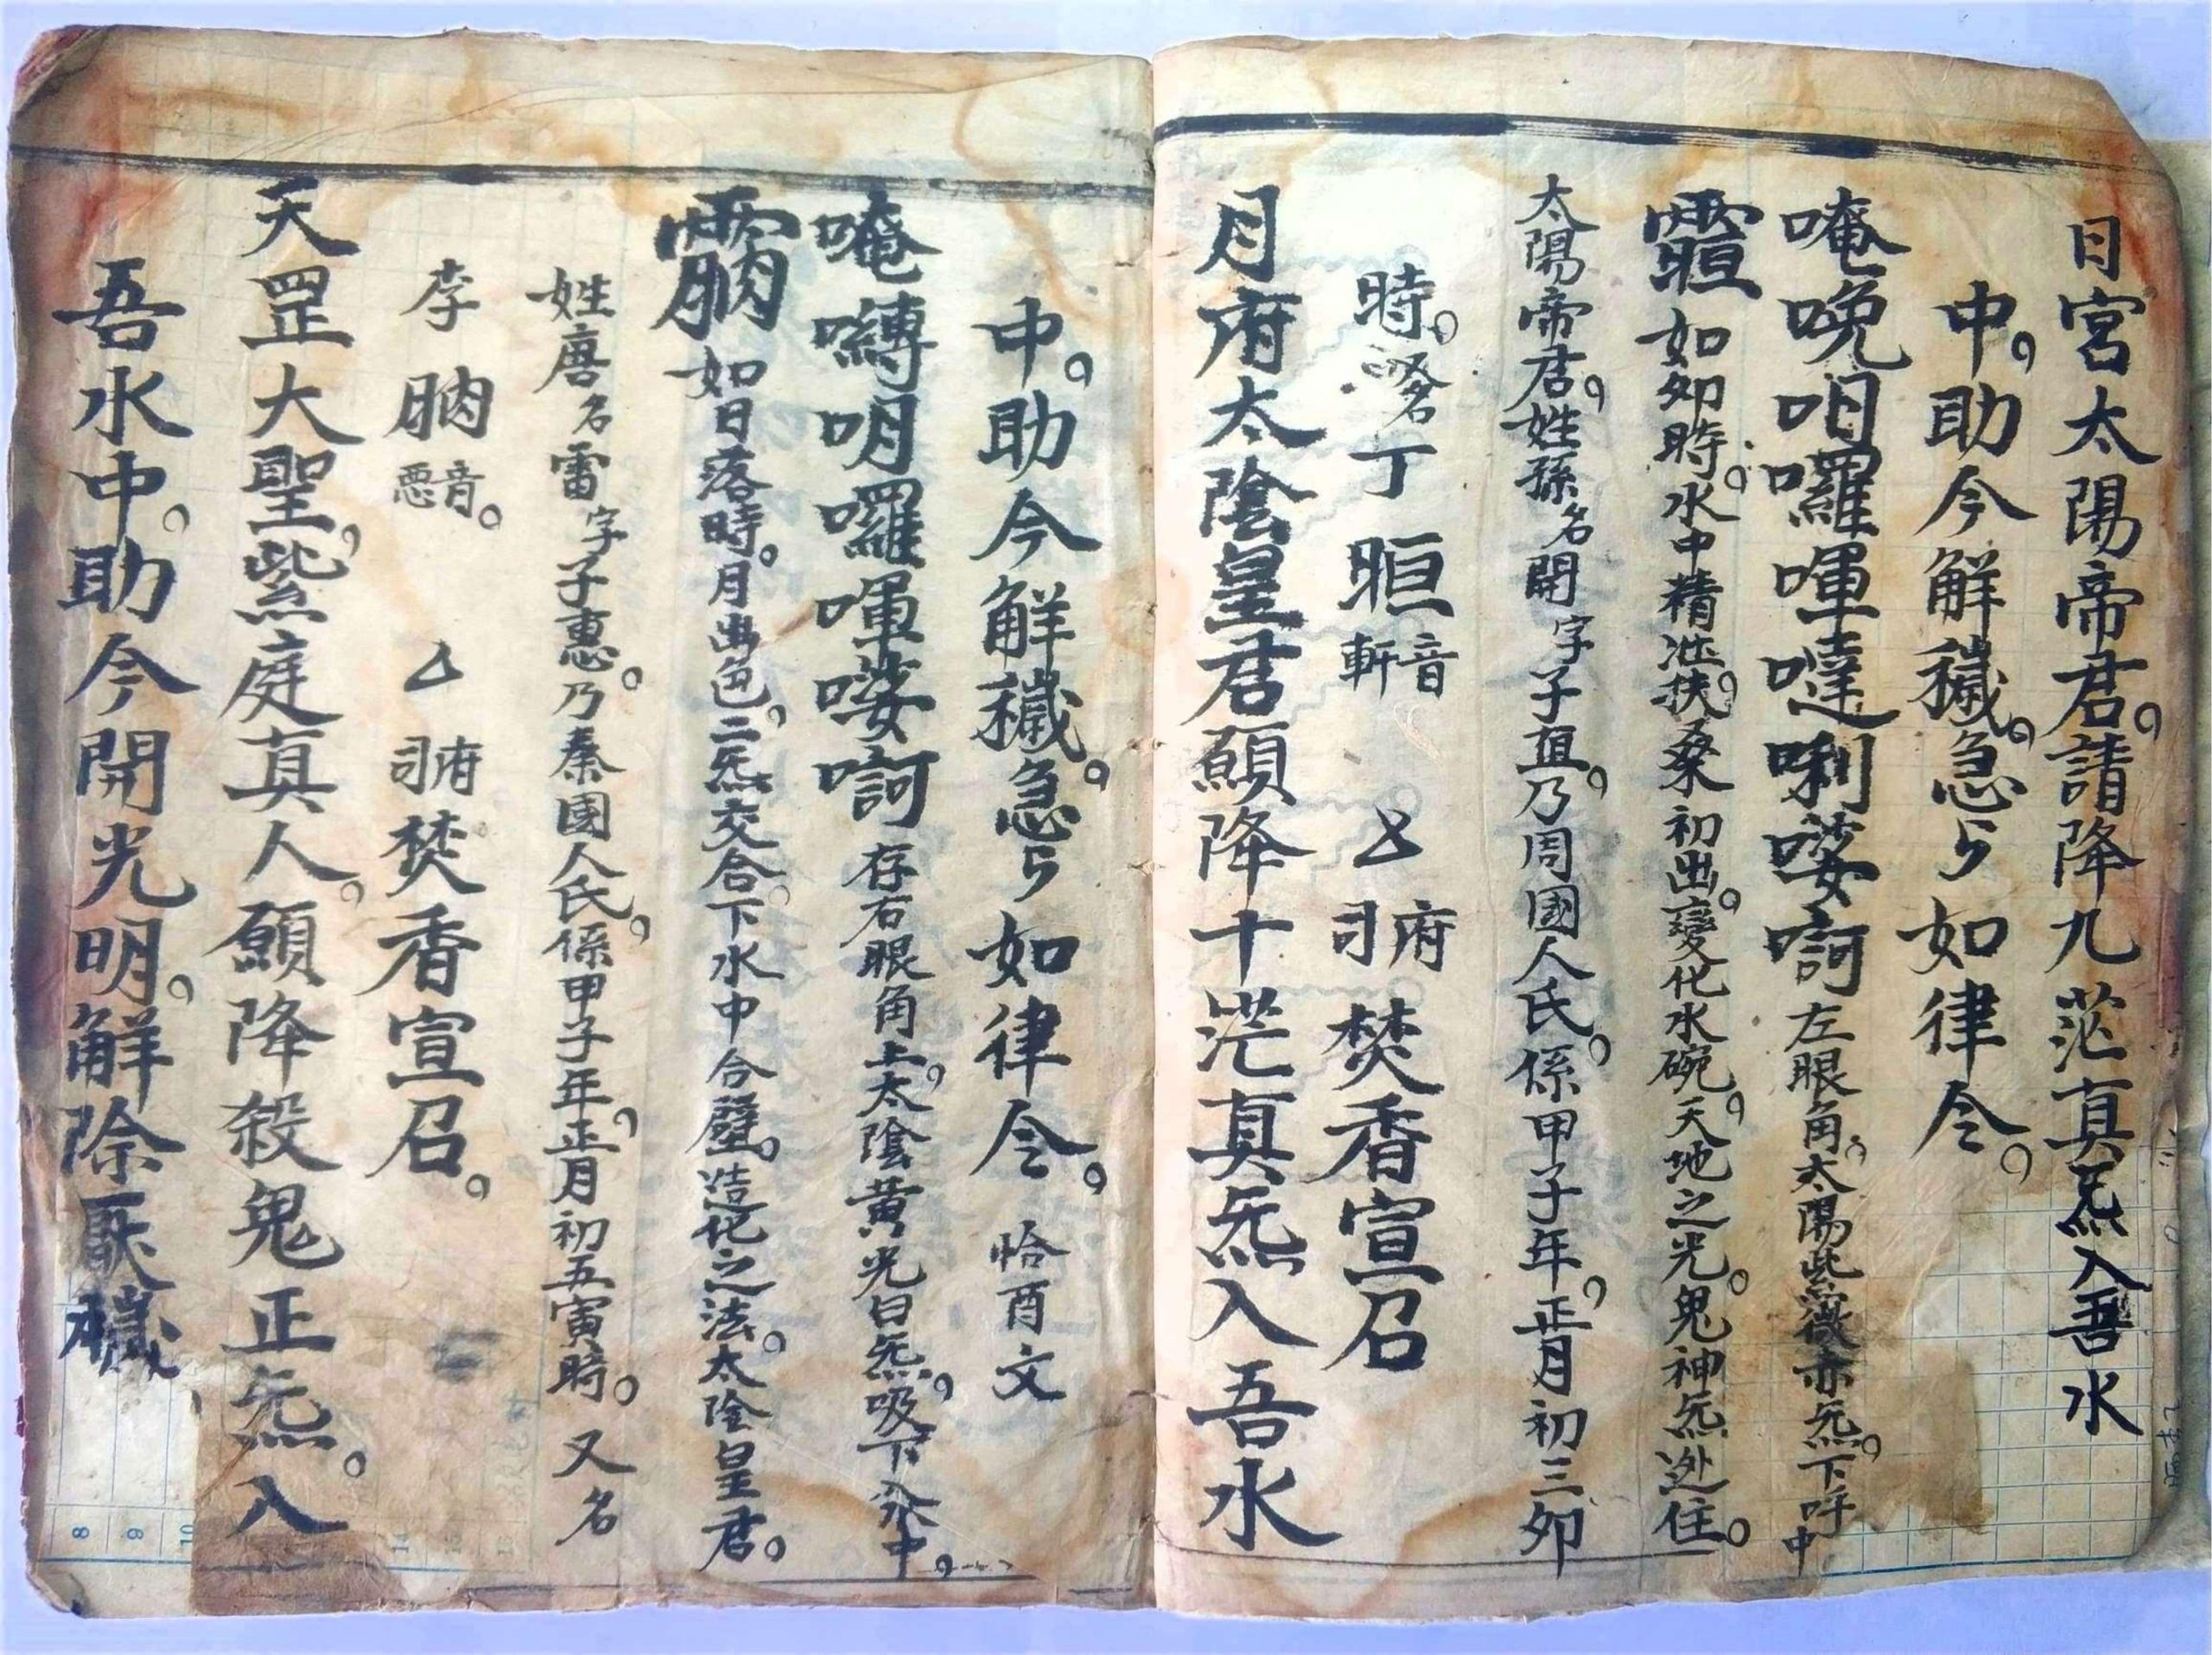 日宮太陽帝君。請降九茫真炁入吾水
中。助今解穢。急々如律令。
唵晚咱囉嗶噠唎娑啊左眼角。太陽紫微赤炁。下呼中
如夘時。水中精沍扶桑初出。變化水碗。天地之光。鬼神炁迯住。
太陽帝君。姓孫名開字子真。乃周國人氏。係甲子年。正月初三夘
時。又名丁晅音軒 厶司府焚香宣召
月府太陰皇君願降十茫真炁入吾水
中。助今解穢。急々如律令。恰酉文
唵嚩明囉嗶娑啊存右眼角上。太陰黃光白炁。吸下入水中。
如日落時。月出色。二炁交合。下水中合璧。造化之法。太陰皇君。
姓唐名雷字子惠。乃秦國人氏。係甲子年。正月初五寅時。又名
李朒音恧。 厶司府焚香宣召。
天罡大聖。紫庭真人。願降殺鬼正炁。入
吾水中。助今開光明。解除厭穢